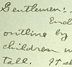 Gentlemen:
Encl
outline by
children u
tell.